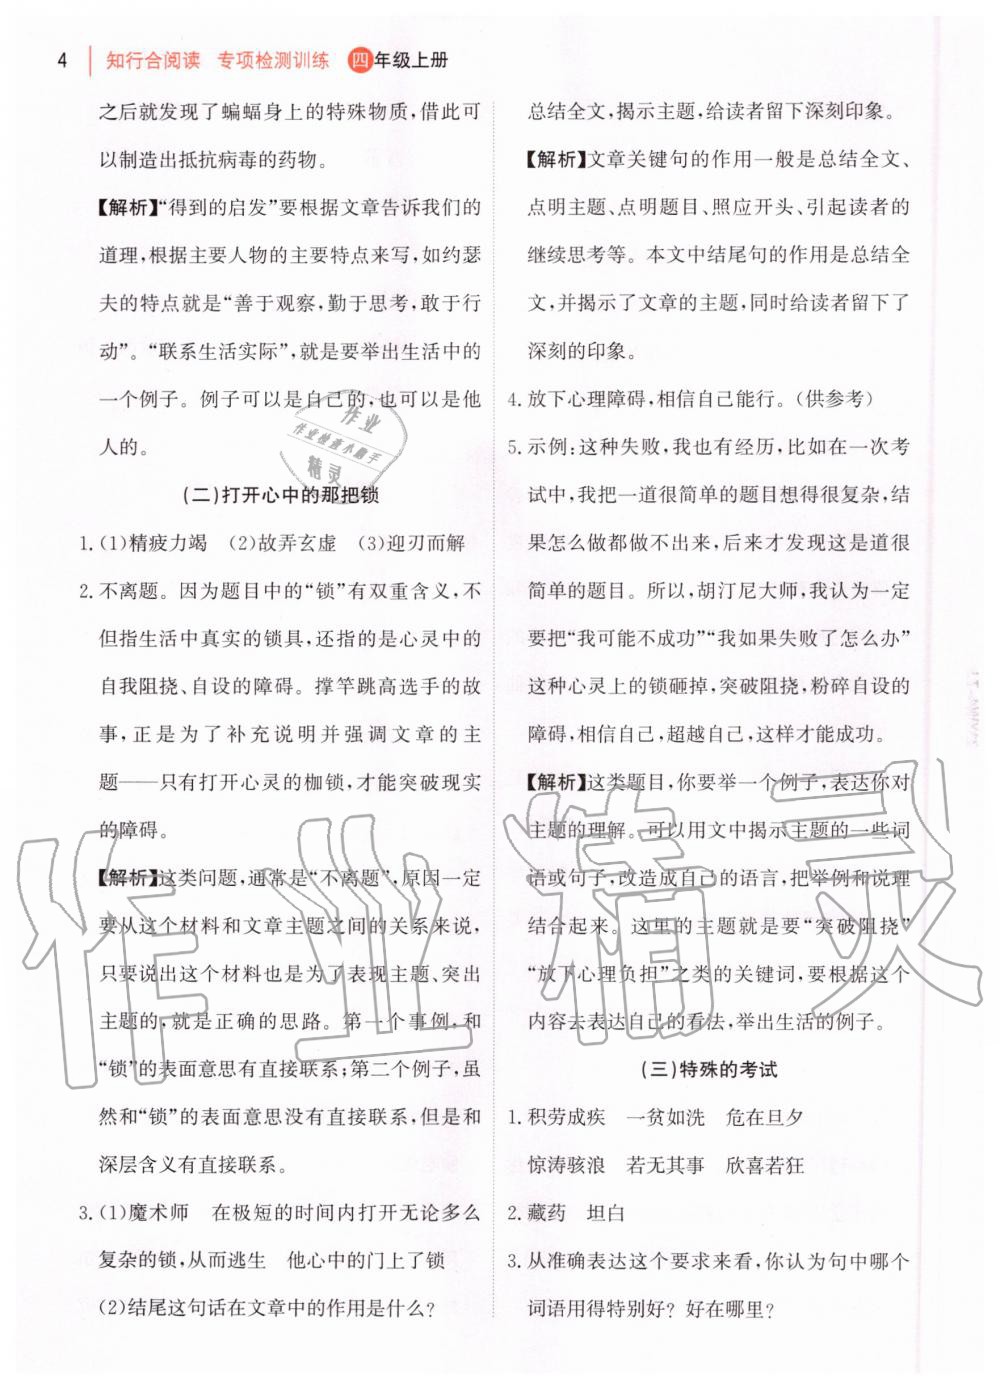 4 知行合阅读 专项检测训练 四年级上册
之后就发现了蝙蝠身上的特殊物质,借此可
以制造出抵抗病毒的药物。
【解析】“得到的启发”要根据文章告诉我们的
道理,根据主要人物的主要特点来写,如约瑟
夫的特点就是“善于观察,勤于思考,敢于行
动”。“联系生活实际”,就是要举出生活中的
一个例子。例子可以是自己的,也可以是他
人的。
(二)打开心中的那把锁
1. (1)精疲力竭 (2)故弄玄虚 (3)迎刃而解
2. 不离题。因为题目中的“锁”有双重含义,不
但指生活中真实的锁具,还指的是心灵中的
自我阻挠、自设的障碍。撑竿跳高选手的故
事,正是为了补充说明并强调文章的主
题——只有打开心灵的枷锁,才能突破现实
的障碍。
【解析】这类问题,通常是“不离题”,原因一定
要从这个材料和文章主题之间的关系来说,
只要说出这个材料也是为了表现主题、突出
主题的,就是正确的思路。第一个事例,和
“锁”的表面意思有直接联系;第二个例子,虽
然和“锁”的表面意思没有直接联系,但是和
深层含义有直接联系。
3. (1)魔术师 在极短的时间内打开无论多么
复杂的锁,从而逃生 他心中的门上了锁
(2)结尾这句话在文章中的作用是什么?
总结全文,揭示主题,给读者留下深刻印象。
【解析】文章关键句的作用一般是总结全文、
点明主题、点明题目、照应开头、引起读者的
继续思考等。本文中结尾句的作用是总结全
文,并揭示了文章的主题,同时给读者留下了
深刻的印象。
4. 放下心理障碍,相信自己能行。(供参考)
5. 示例:这种失败,我也有经历,比如在一次考
试中,我把一道很简单的题目想得很复杂,结
果怎么做都做不出来,后来才发现这是道很
简单的题目。所以,胡汀尼大师,我认为一定
要把“我可能不成功”“我如果失败了怎么办”
这种心灵上的锁砸掉,突破阻挠,粉碎自设的
障碍,相信自己,超越自己,这样才能成功。
【解析】这类题目,你要举一个例子,表达你对
主题的理解。可以用文中揭示主题的一些词
语或句子,改造成自己的语言,把举例和说理
结合起来。这里的主题就是要“突破阻挠”
“放下心理负担”之类的关键词,要根据这个
内容去表达自己的看法,举出生活的例子。
(三)特殊的考试
1. 积劳成疾 一贫如洗 危在旦夕
惊涛骇浪 若无其事 欣喜若狂
2. 藏药 坦白
3. 从准确表达这个要求来看,你认为句中哪个
词语用得特别好?好在哪里?
作业
作业检查小助手
精灵
作业精灵